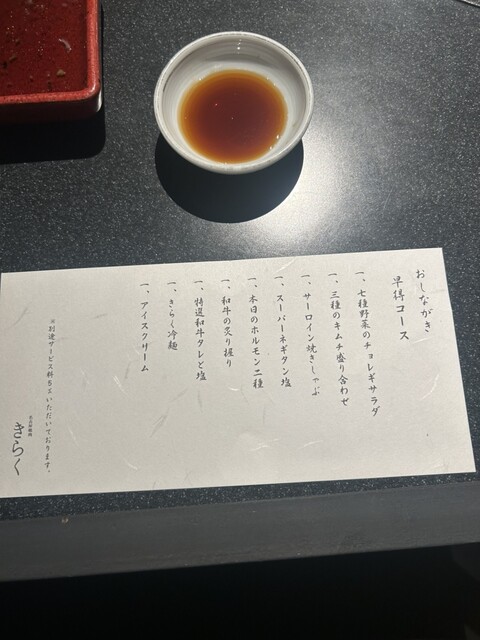 おしながき
早得コース
一、七種野菜のチョレギサラダ
一、三種のキムチ盛り合わせ
一、サーロイン焼きしゃぶ
一、スーパーネギタン塩
一、本日のホルモン二種
一、和牛の炙り握り
一、特選和牛タレと塩
一、きらく冷麺
一、アイスクリーム
※別途サービス料5%いただいております。
きらく